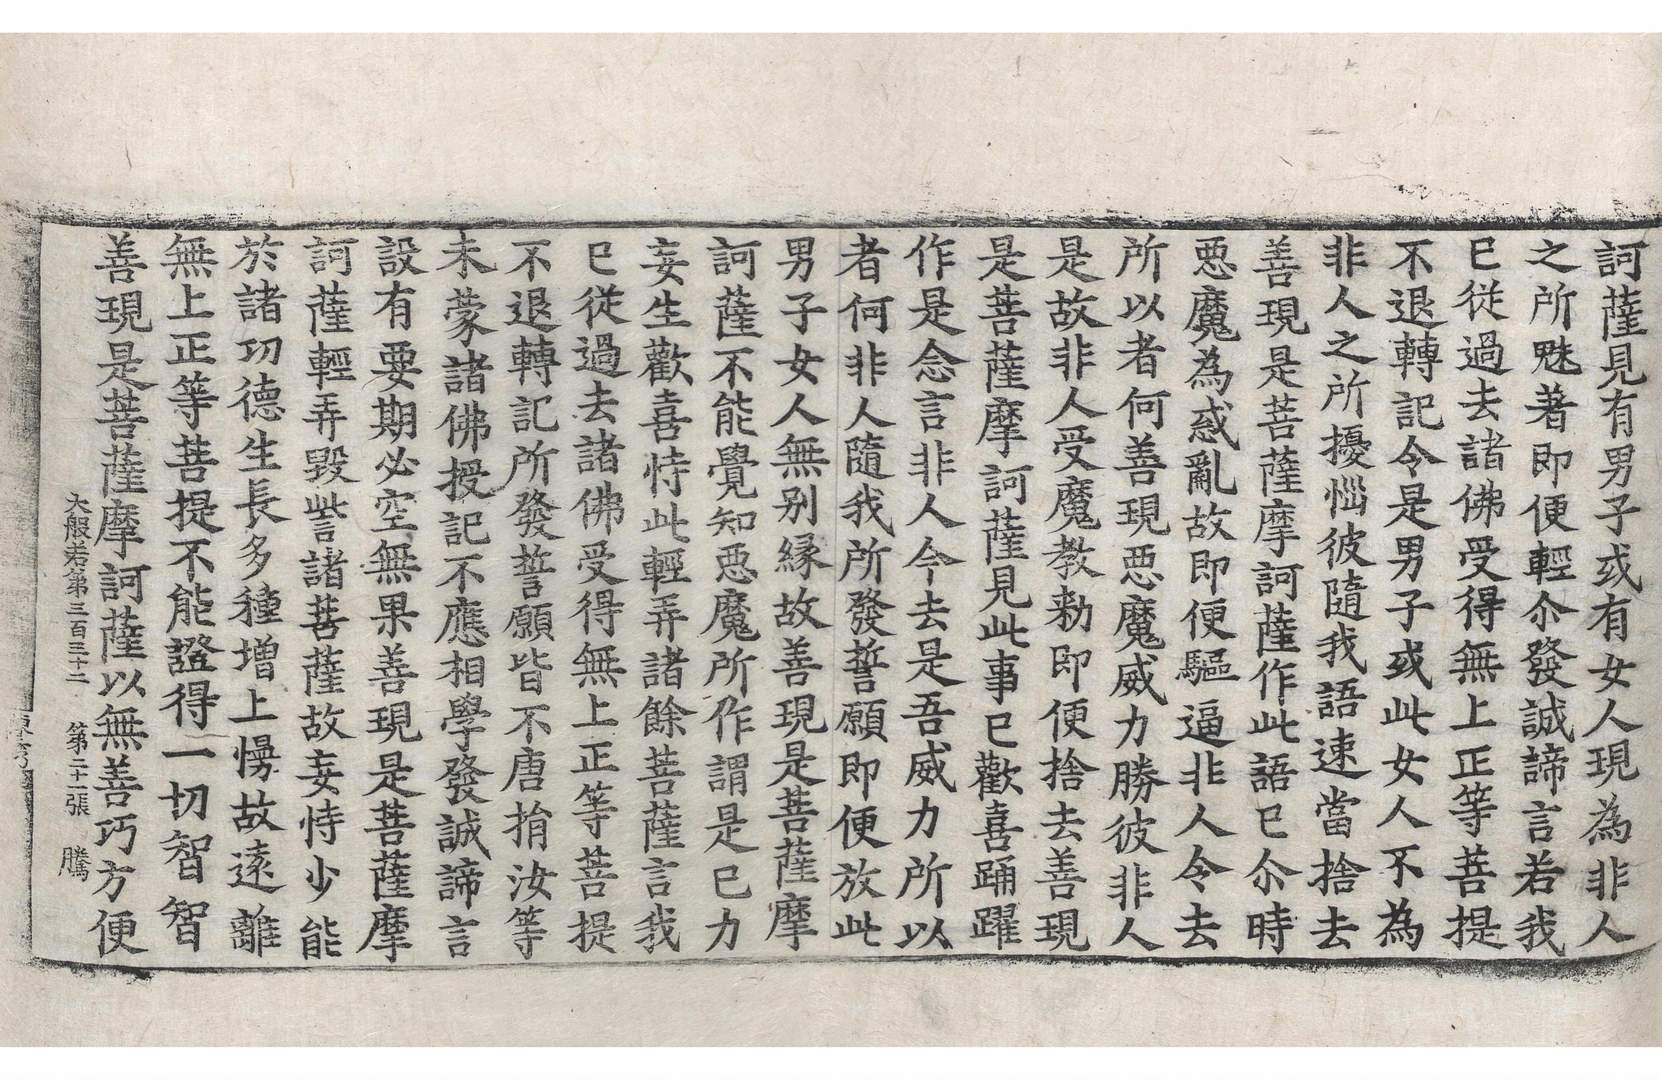 訶薩見有男子或有女人現為非人
之所魅著即便輕尒發誠諦言若我
已從過去諸佛受得無上正等菩提
不退轉記令是男子或此女人不為
非人之所擾惱彼隨我語速當捨去
善現是菩薩摩訶薩作此語已尒時
惡魔為惑亂故即便驅逼非人令去
所以者何善現惡魔威力勝彼非人
是故非人受魔教勅即便捨去善現
是菩薩摩訶薩見此事已歡喜踊躍
作是念言非人今去是吾威力所以
者何非人隨我所發誓願即便放此
男子女人無别緣故善現是菩薩摩
訶薩不能覺知惡魔所作謂是已力
妄生歡喜恃此輕弄諸餘菩薩言我
已從過去諸佛受得無上正等菩提
不退轉記所發誓願皆不唐捐汝等
未蒙諸佛授記不應相學發誠諦言
設有要期必空無果善現是菩薩摩
訶薩輕弄毀訾諸菩薩故妄恃少能
於諸功德生長多種增上慢故遠離
無上正等菩提不能證得一切智智
善現是菩薩摩訶薩以無善巧方便
大般若第三百三十二 第二十一張 騰